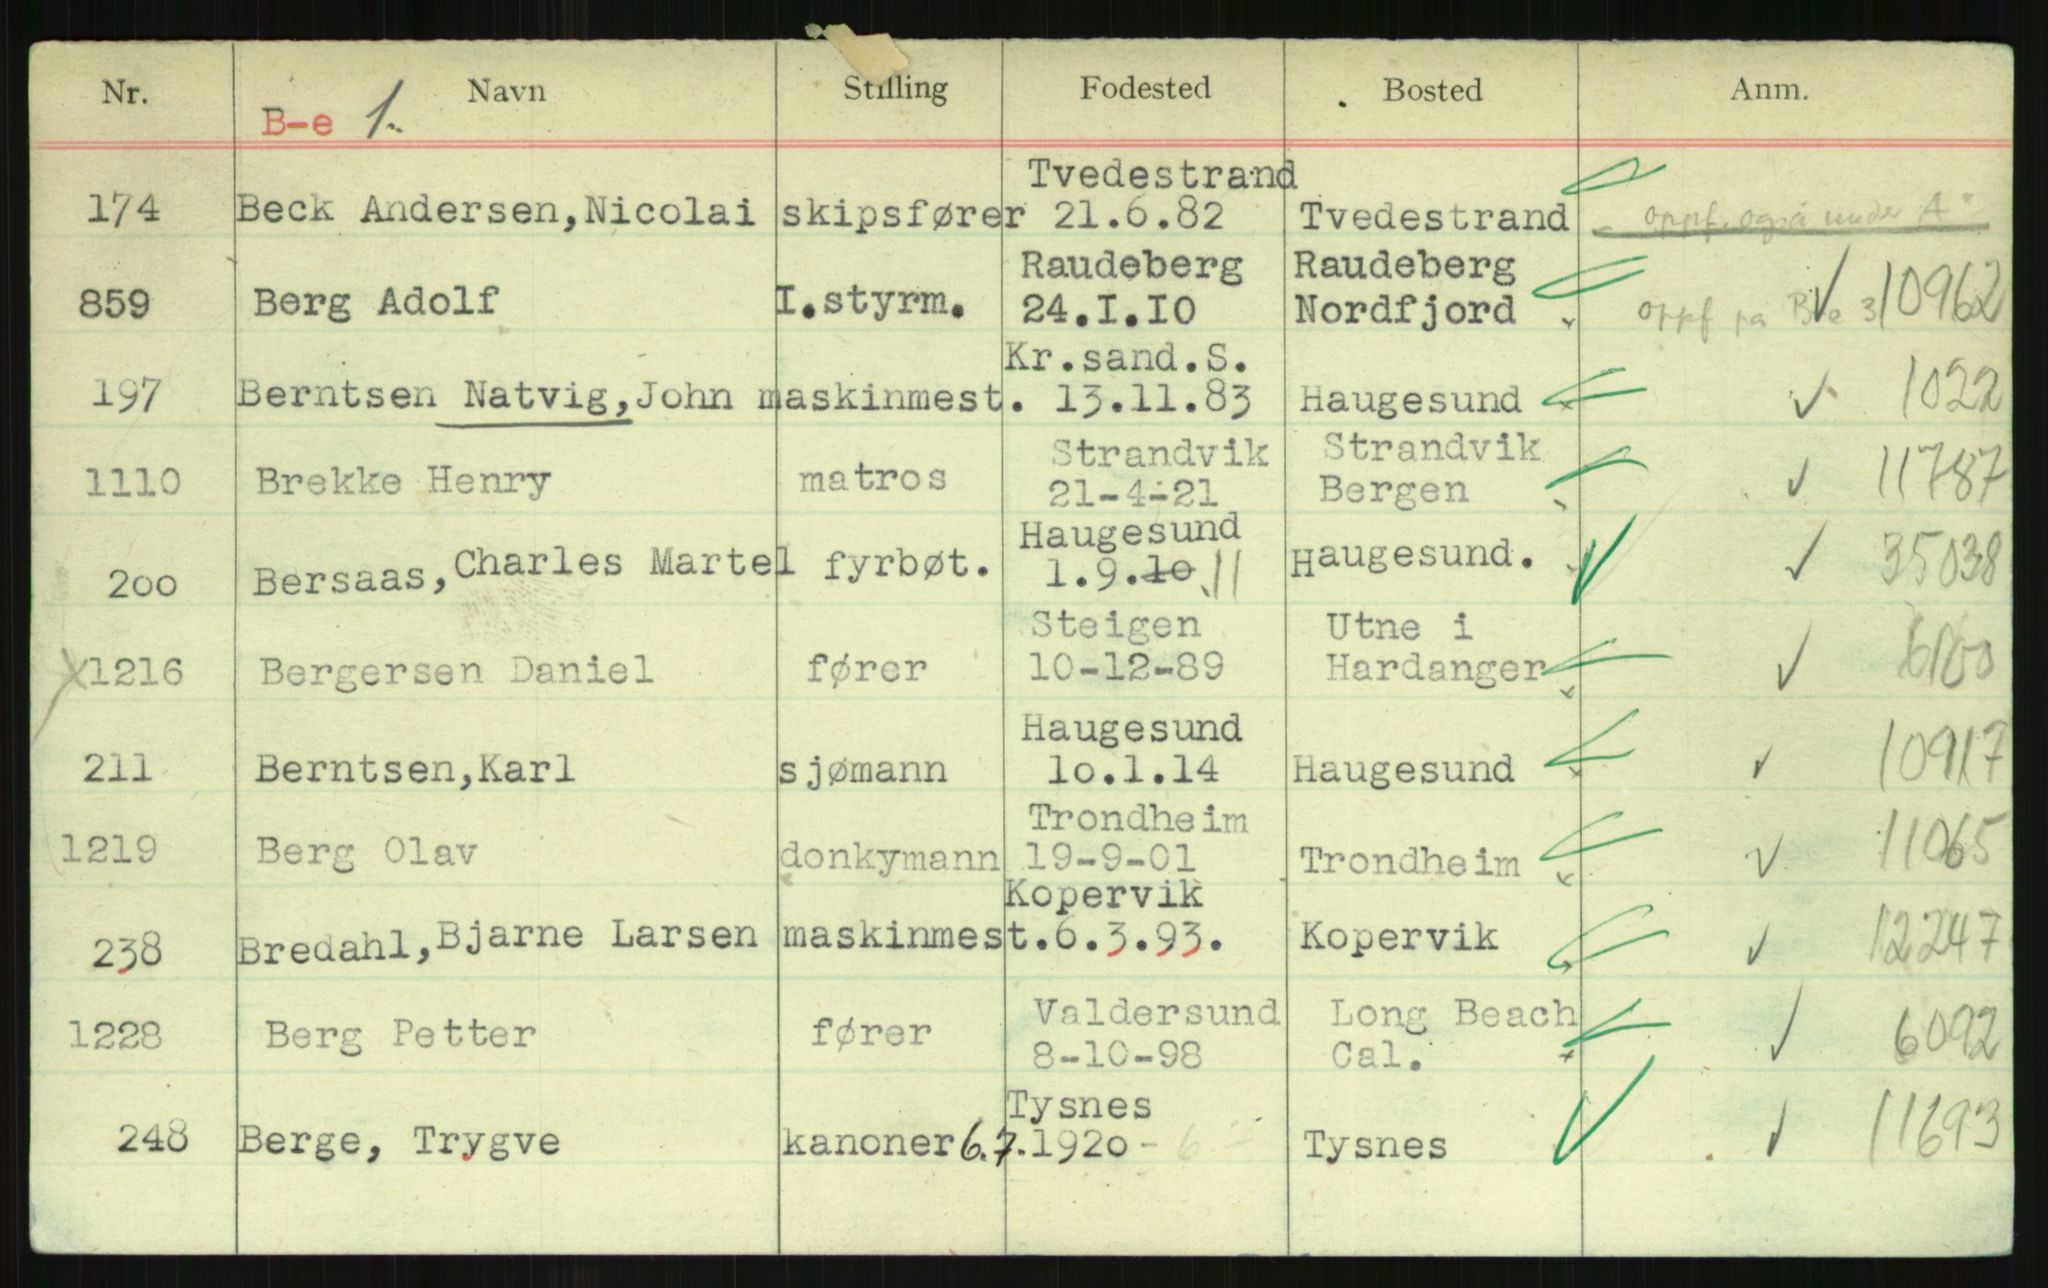 Nr. Navn Stilling Fodested Bosted Anm.
B-e 1.
Tvedestrand
174 Beck Andersen, Nicolai skipsfører 21.6.82 Tvedestrand oppf. også under A
Raudeberg Raudeberg
859 Berg Adolf I.styrm. 24.I.I0 Nordfjord oppf på B-e 3 10962
Kr.sand.S.
197 Berntsen Natvig, John maskinmest. 13.11.83 Haugesund 1022
Strandvik Strandvik
1110 Brekke Henry matros 21-4-21 Bergen 11787
Haugesund
200 Bersaas, Charles Martel fyrbøt. 1.9.10 11 Haugesund. 35038
Steigen Utne i
1216 Bergersen Daniel fører 10-12-89 Hardanger
Haugesund
211 Berntsen, Karl sjømann 10.1.14 Haugesund 10917
Trondheim
1219 Berg Olav donkymann 19-9-01 Trondheim 11065
Kopervik
238 Bredahl, Bjarne Larsen maskinmest. 6.3.93. Kopervik 12247
Valdersund Long Beach
1228 Berg Petter fører 8-10-98 Cal. 6092
Tysnes
248 Berge, Trygve kanoner 6.7.1920 - 6 Tysnes 11693